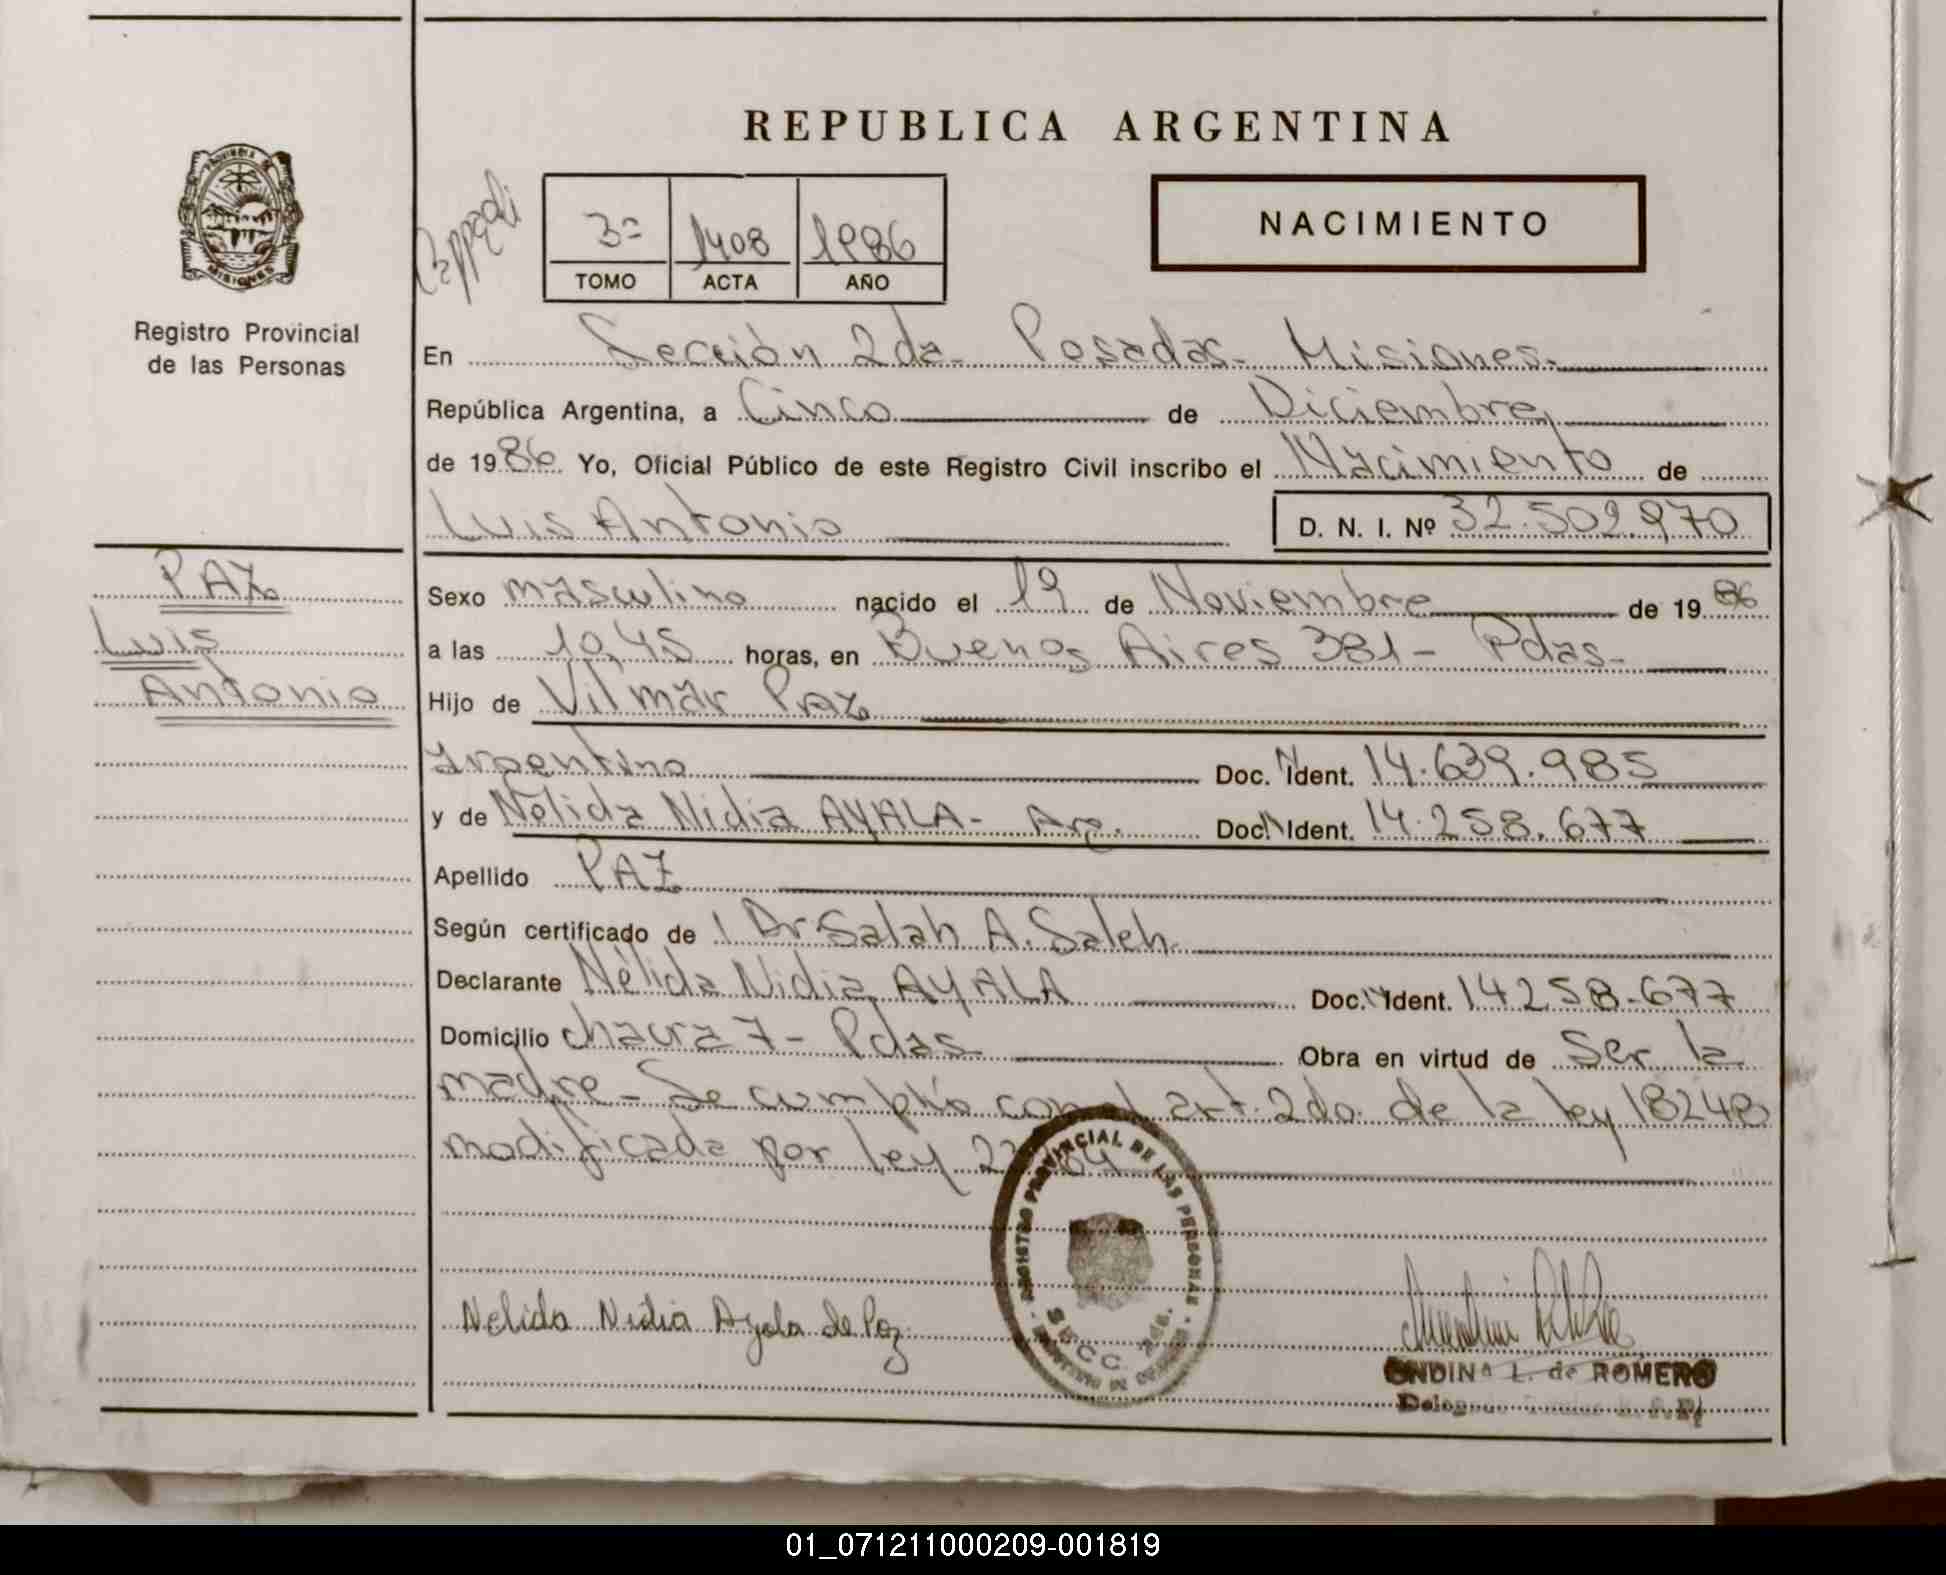 REPUBLICA ARGENTINA
PROVINCIA DE
MISIONES
Registro Provincial
de las Personas
3ª 1408 1986
TOMO ACTA AÑO
NACIMIENTO
En Sección 2da- Posadas- Misiones-
República Argentina, a Cinco de Diciembre,
de 1986. Yo, Oficial Público de este Registro Civil inscribo el Nacimiento de
Luis Antonio D. N. I. Nº 32.502.970
PAZ
Luis
Antonio
Sexo masculino nacido el 19 de Noviembre de 1986
a las 10,45 horas, en Buenos Aires 381- Pdas-
Hijo de Vilmar Paz
Argentino Doc. N Ident. 14.639.985
y de Nélida Nidia AYALA- Arg. Doc. N Ident. 14.258.677
Apellido PAZ
Según certificado de Dr. Salah A. Saleh
Declarante Nélida Nidia AYALA Doc. N Ident. 14258.677
Domicilio chacra 7- Pdas- Obra en virtud de Ser la
madre- Se cumplió con el art. 2do. de la ley 18248
modificada por ley
REGISTRO PROVINCIAL DE LAS PERSONAS
SECC. 2da.
Nelida Nidia Ayala de Paz
ONDINA L. de ROMERO
01_071211000209-001819